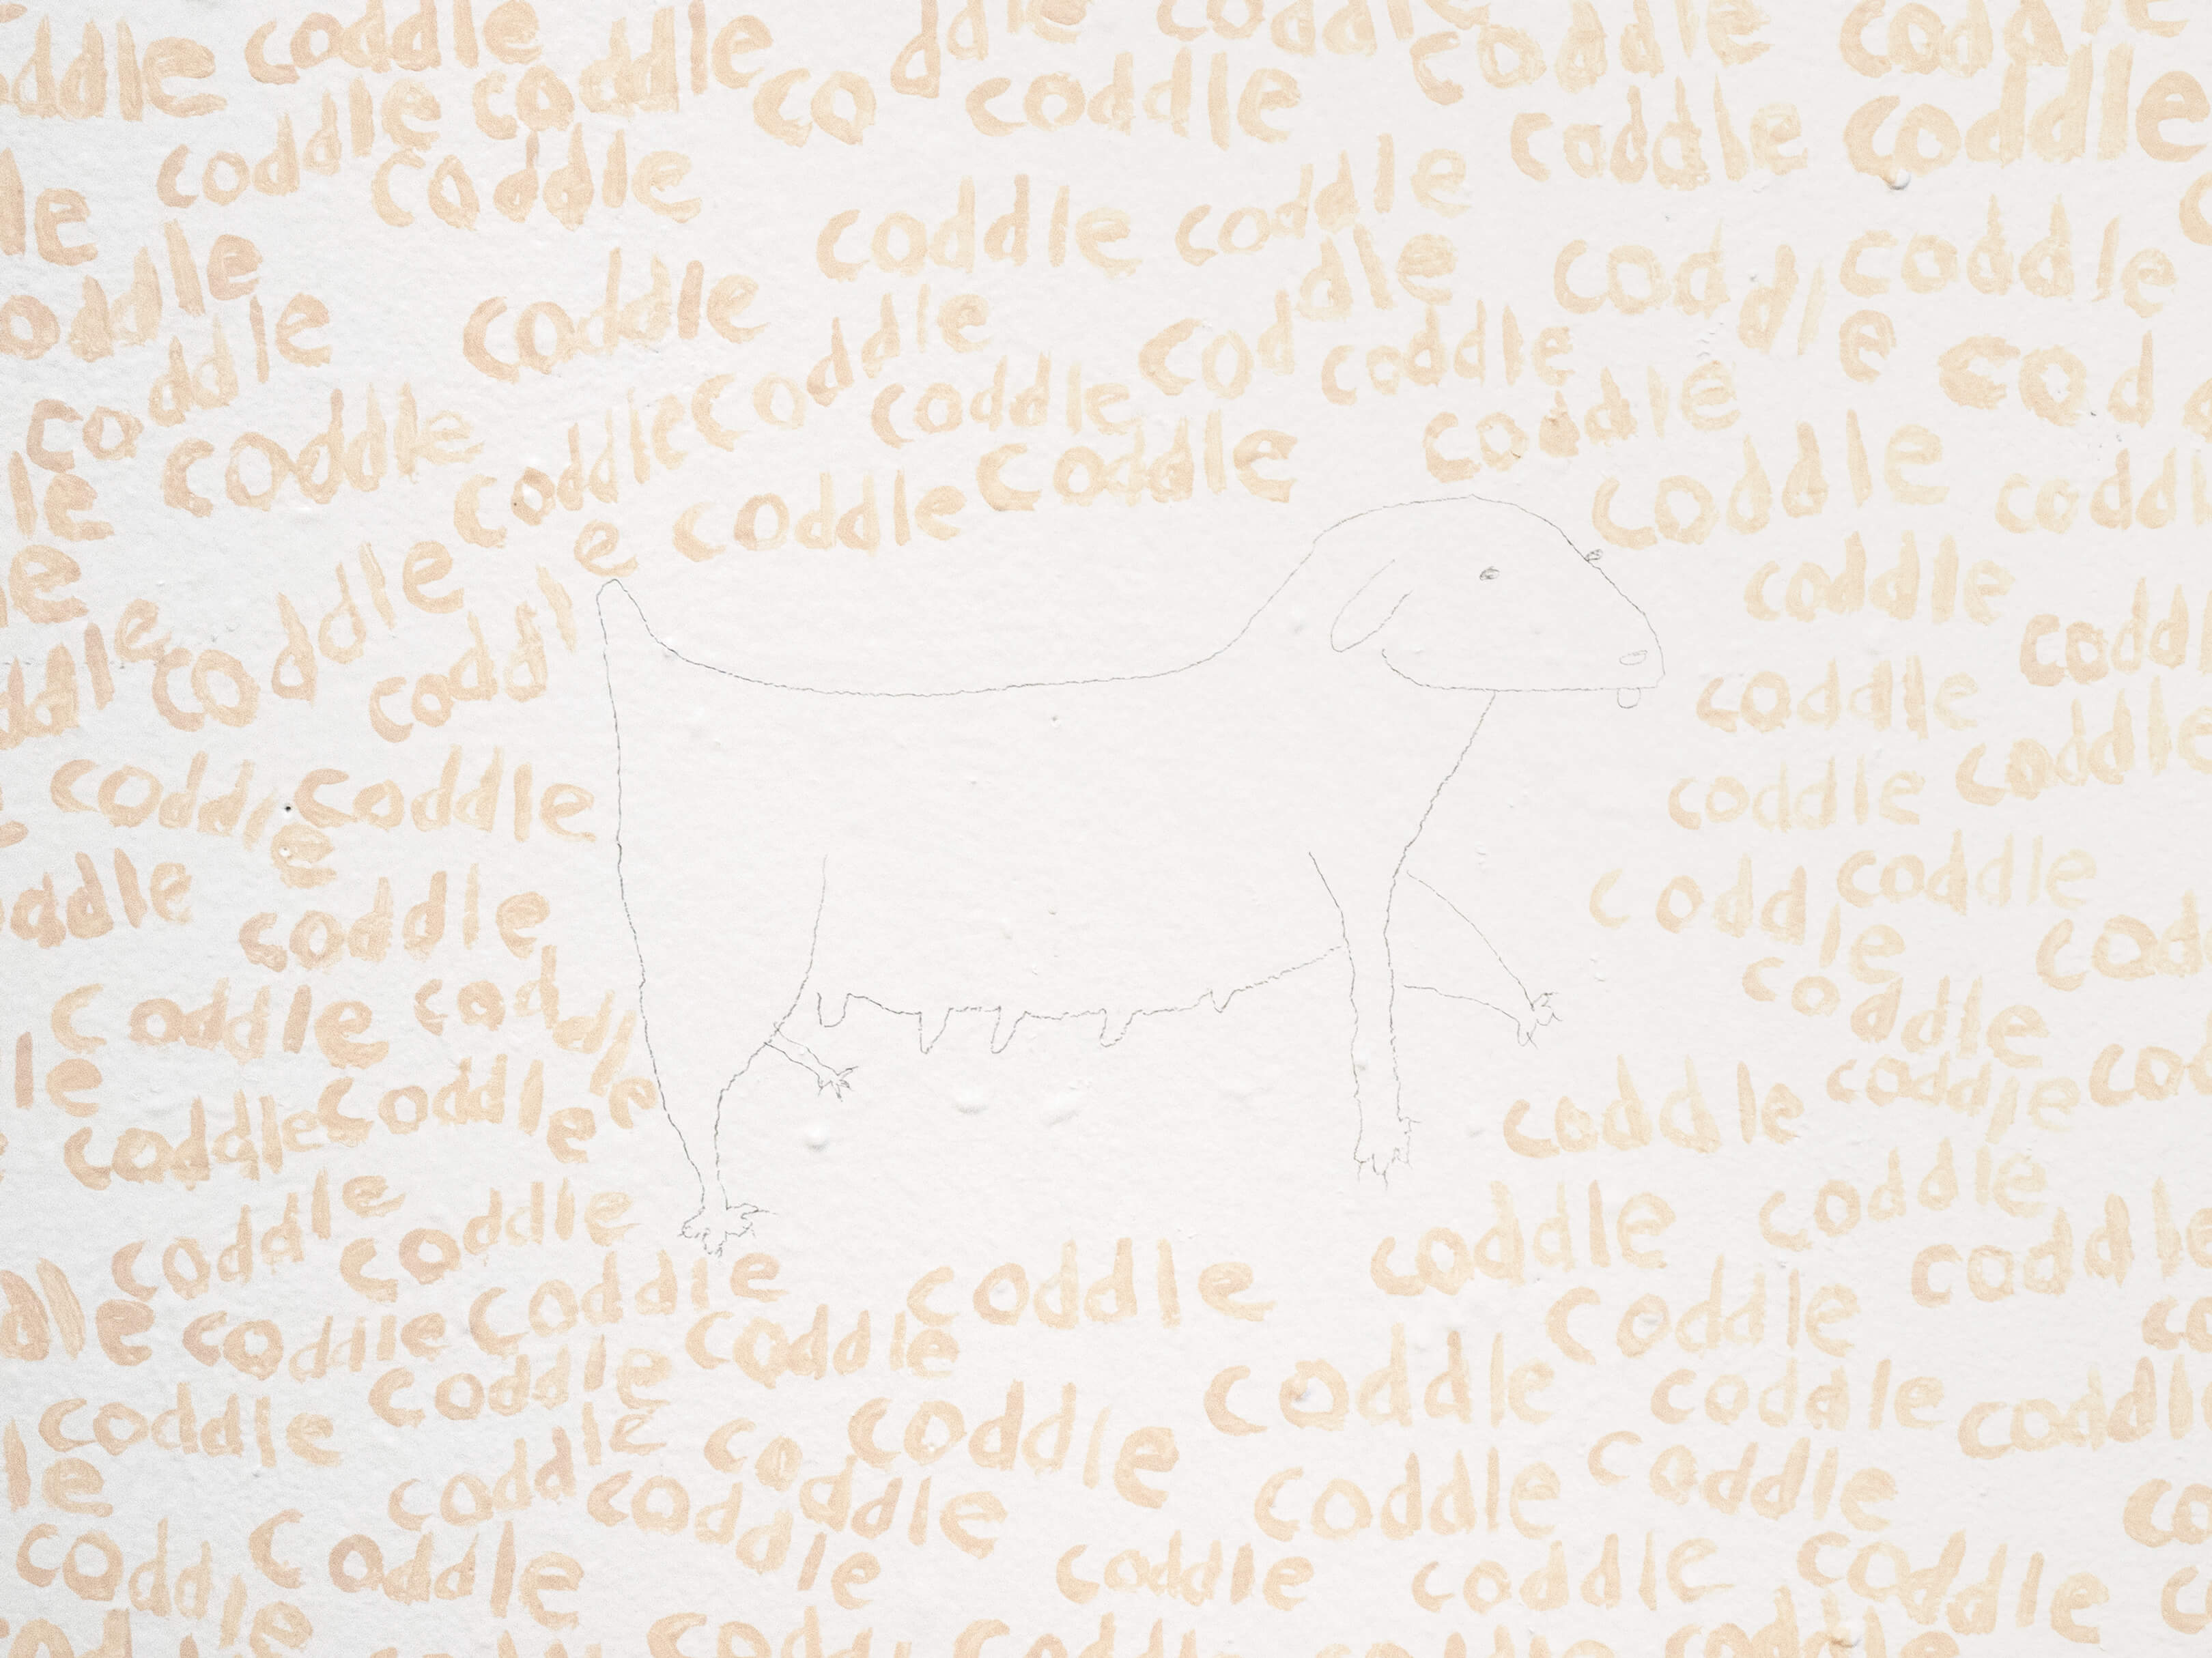 ddle coddle coddle co ddle coddle coddle coddle
coddle coddle coddle coddle coddle
le coddle coddle
oddle coddle coddle coddle coddle coddle
coddle coddle coddle coddle coddle coddle cod
le coddle coddle coddle coddle coddle coddle
e coddle coddle coddle
ddle coddle coddle coddle
coddle coddle coddle coddle
ddle coddle coddle coddle cod
coddle coddle coddle
le coddle coddle coddle coddle co
coddle coddle coddle coddle
dle coddle coddle coddle coddle coddle co
coddle coddle coddle coddle coddle coddle
le coddle coddle coddle coddle coddle coddle co
coddle coddle coddle coddle coddle
cod coddle coddle coddle